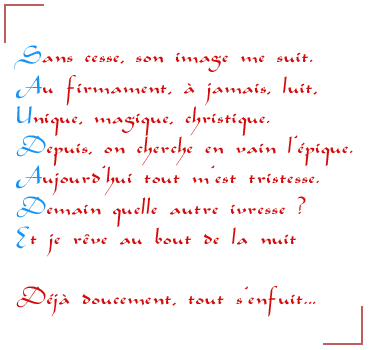 Sans cesse, son image me suit.
Au firmament, à jamais, luit,
Unique, magique, christique.
Depuis, on cherche en vain l'épique.
Aujourd'hui tout m'est tristesse.
Demain quelle autre ivresse ?
Et je rêve au bout de la nuit
Déjà doucement, tout s'enfuit...